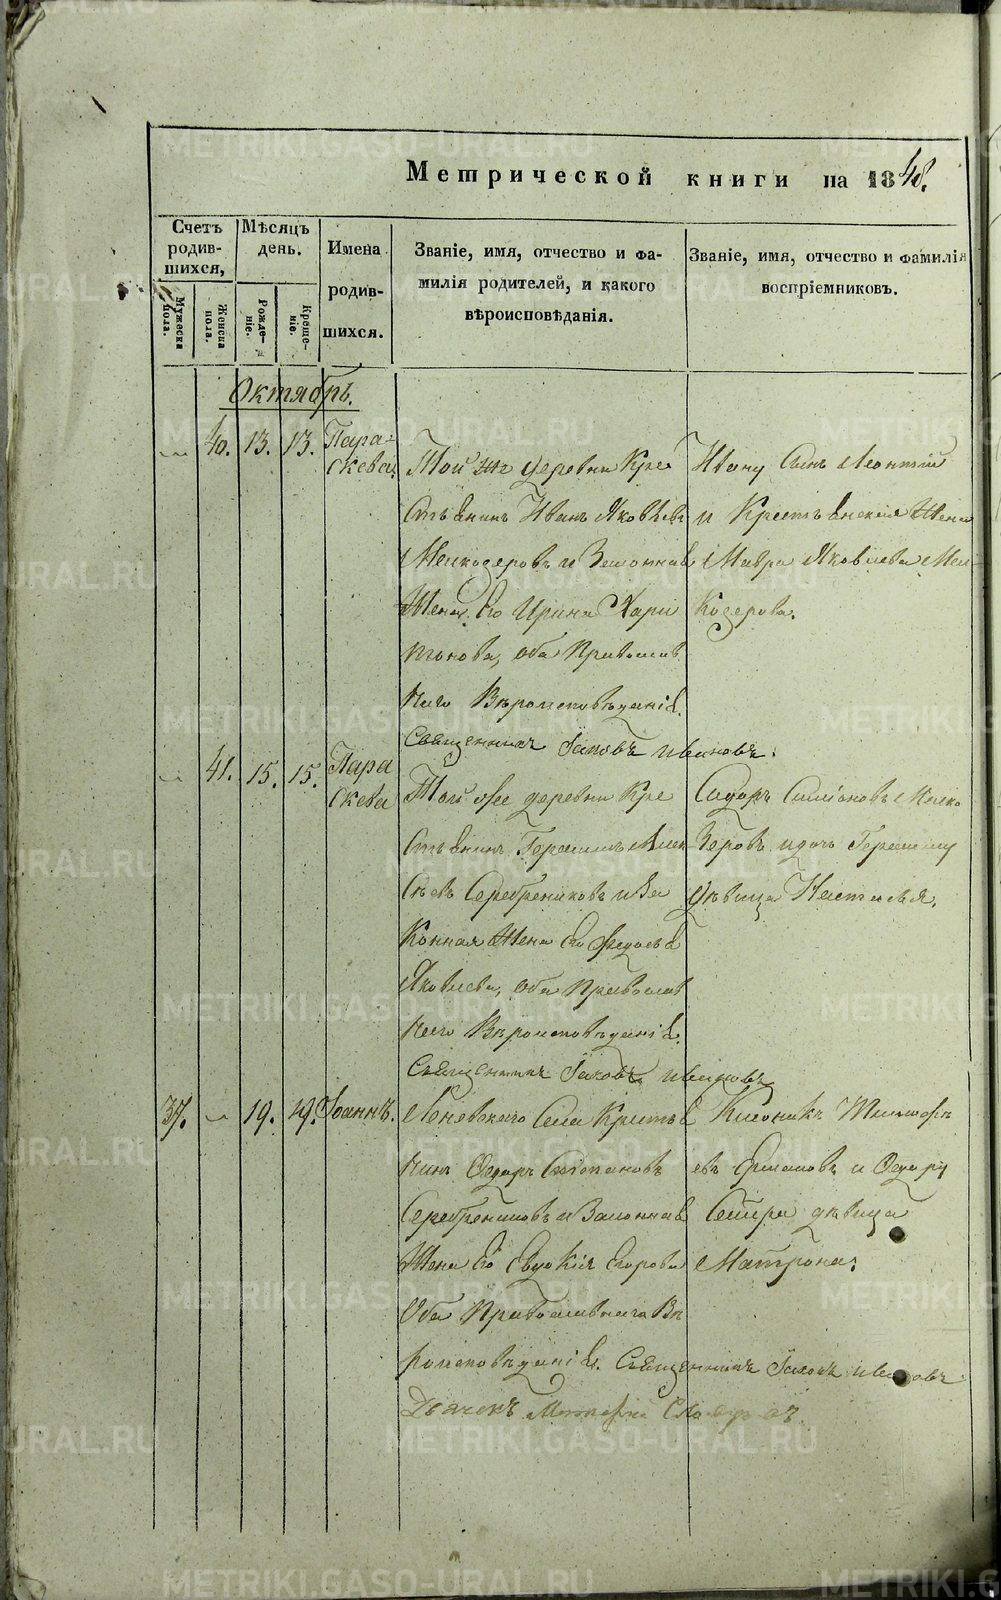 Метрической книги на 1848.
Счетъ родившихся,
Мужеска пола.
Женска пола.
Мѣсяцъ день.
Рожденіе.
Крещеніе.
Имена родившихся.
Званіе, имя, отчество и фамилія родителей, и какого вѣроисповѣданія.
Званіе, имя, отчество и фамилія воспріемниковъ.
Октябрь.
40. 13. 13. Параскева.
Той же деревни Кре
стьянинъ Иванъ Яковлевъ
Мелкозеровъ и Законная
Жена Его Ирина Хари
тонова, оба Православ
наго Вѣроисповѣданія.
Священникъ Іаковъ Ивановъ.
Ивану Сынъ Леонтій
и Крестьянская Жена
Мавра Яковлева Мел
козерова.
41. 15. 15. Параскева
Той же деревни Кре
стьянинъ Герасимъ Алек
сѣевъ Серебрениковъ и За
конная Жена Его Федосья
Яковлева, оба Православ
наго Вѣроисповѣданія.
Священникъ Іаковъ Ивановъ
Сидоръ Симіоновъ Мелко
зеровъ и дочь Герасиму
дѣвица Настасья.
37. 19. 19. Іоаннъ.
Леневскаго Села Крестья
нинъ Федоръ Степановъ
Серебрениковъ и Законная
Жена Его Евдокія Егорова
Оба Православнаго Вѣ
роисповѣданія. Священникъ Іаковъ Ивановъ
Дьячекъ
Тимофе
евъ и Федору
Сестра дѣвица
Матрона.
METRIKI.GASO-URAL.RU